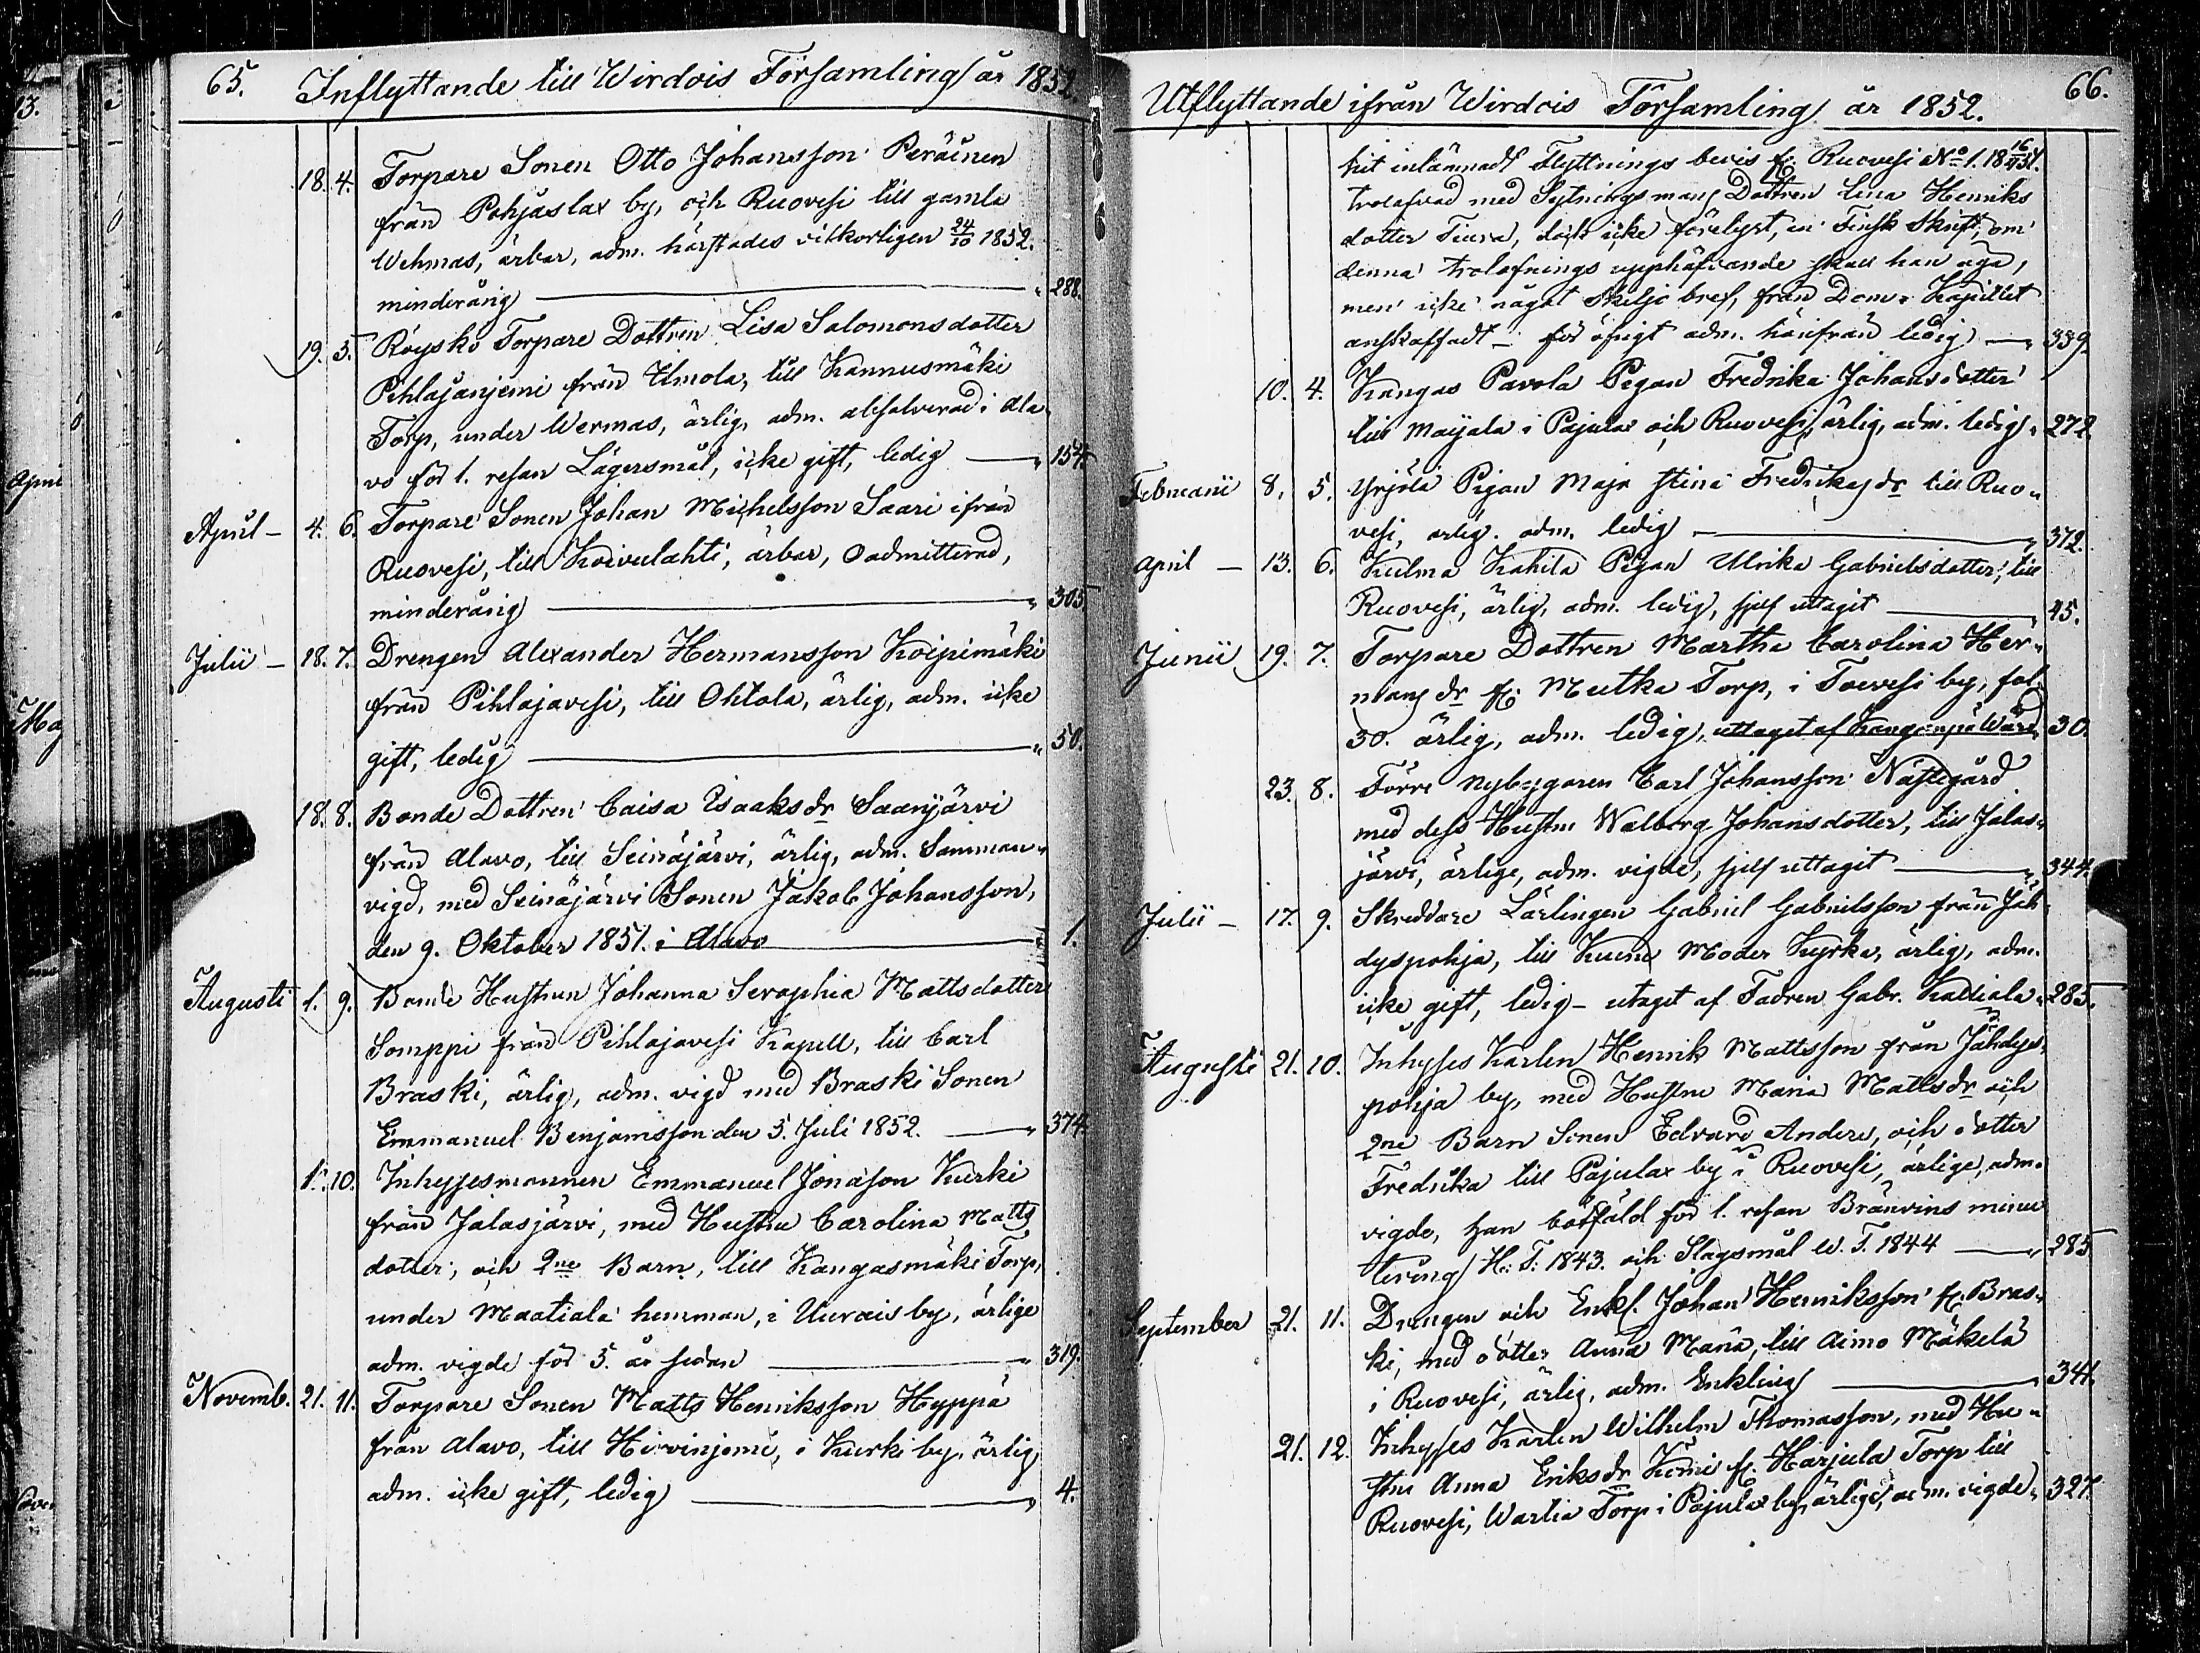 65. Inflyttande till Wirdois Församling år 1852.
18. 4. Torpare Sonen Otto Johansson Peräinen
från Pohjaslax by, och Ruovesi till gamla
Wehmas, ärbar, adm. härstades vilkorligen 24/10 1852.
minderårig — " 288.
19. 5. Röyskö Torpare Dottren Lisa Salomonsdotter
Pihlajanjemi från Ilmola, till Kannusmäki
Torp, under Wermas, ärlig, adm. absolverad i Ala
vo för 1. resan Lägersmål, icke gift, ledig — " 154.
April — 4. 6. Torpare Sonen Johan Michelsson Saari ifrån
Ruovesi, till Koivulahti, ärbar, oadmitterad,
minderårig — " 305
Julii — 18. 7. Drengen Alexander Hermansson Koipimäki
från Pihlajavesi, till Ohtola, ärlig, adm. icke
gift, ledig — " 50.
18. 8. Bonde Dottren Caisa Isaaksdr Saarijärvi
från Alavo, till Seinäjärvi, ärlig, adm. Samman
vigd, med Seinäjärvi Sonen Jakob Johansson,
den 9. Oktober 1851. i Alavo — " 1.
Augusti 1. 9. Bonde Hustrun Johanna Seraphia Mattsdotter
Somppi från Pihlajavesi Kapell, till Carl
Braski, ärlig, adm. vigd med Braski Sonen
Emmanuel Benjamisson den 5. Juli 1852. — " 374.
1. 10. Inhysesmannen Emmanuel Jonasson Kurki
från Jalasjärvi, med Hustru Carolina Matts
dotter, och 2ne Barn, till Kangasmäki Torp,
under Maatiala hemman, i Uurais by, ärlige
adm. vigde för 5. år sedan — " 319.
Novemb. 21. 11. Torpare Sonen Matts Henriksson Hyppä
från Alavo, till Hirvinjemi, i Kurki by, ärlig,
adm. icke gift, ledig — " 4.
Utflyttande ifrån Wirdois Församling år 1852. 66.
hit inlämnadt Flyttnings bevis fr. Ruovesi No 1. 18
trolofvad med Sytningsmans Dottren Lena Henriks
dotter Tiura, dock icke förelyst, en Finsk Skrift, om
denna trolofnings upphäfvande skall han äga,
men icke något Skiljo bref, från Dom Kapitlet
anskaffadt — för öfrigt adm. härifrån ledig — " 339.
10. 4. Kangas Pavola Pigan Fredrika Johansdotter
till Maijala i Pajulax och Ruovesi, ärlig, adm. ledig " 272
Februarii 8. 5. Yrjölä Pigan Maja Stina Fredriksdr till Ruo
vesi, ärlig. adm. ledig — " 372.
April — 13. 6. Kulma Kahila Pigan Ulrika Gabrielsdotter, till
Ruovesi, ärlig, adm. ledig, sjelf uttagit — " 45.
Junii 19. 7. Torpare Dottren Martha Carolina Her
mansdr fr. Mutka Torp, i Toivesi by, fol.
30. ärlig, adm. ledig, uttaget af " 30.
23. 8. Förre Nybyggaren Carl Johansson Nästegård
med dess Hustru Walborg Johansdotter, till Jalas
järvi, ärlige, adm. vigde, sjelf uttagit — " 344.
Julii — 17. 9. Skreddare Lärlingen Gabriel Gabrielsson från Jäh
dyspohja, till Kuru Moder Kyrka, ärlig, adm.
icke gift, ledig — utaget af Fadren Gabr. Kattiala " 285.
Augusti 21. 10. Inhyses Karlen Henrik Mattsson från Jähdys
pohja by, med Hustru Maria Mattsdr och
2ne Barn Sonen Edvard Anders, och dotter
Fredrika till Pajulax by i Ruovesi, ärlige, adm.
vigde, han botfäld för 1. resan Bränvins minu
tering H. T. 1843. och Slagsmål W. T. 1844 — " 285
September 21. 11. Drengen och Enkl. Johan Henriksson fr. Bras
ki, med dotter Anna Maria, till Aimo Mäkelä
i Ruovesi, ärlig, adm. Enkling — " 341.
21. 12. Inhyses Karlen Wilhelm Thomasson, med Hu
stru Anna Eriksdr Kurki fr. Harjula Torp till
Ruovesi, Warlia Torp i Pajulax by, ärlige, adm. vigde " 327.